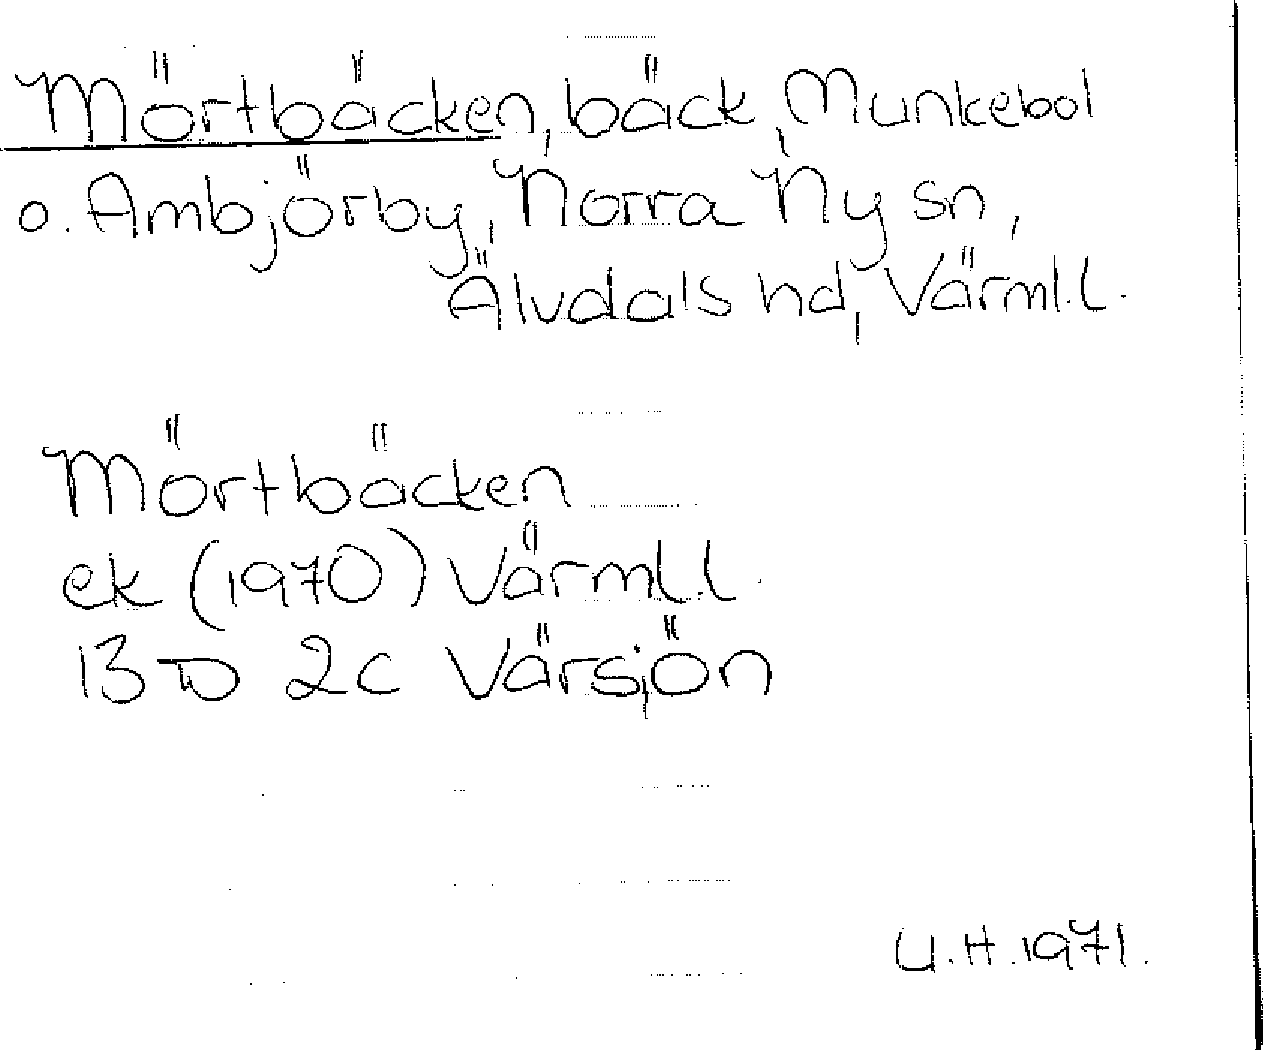 Mörtbäcken, bäck, Munkebol
o. Ambjörby, Norra Ny sn,
Älvdals hd, Värml.l.
Mörtbäcken
ek (1970) Värml.l.
13D 2c Värsjön
U.H. 1971.